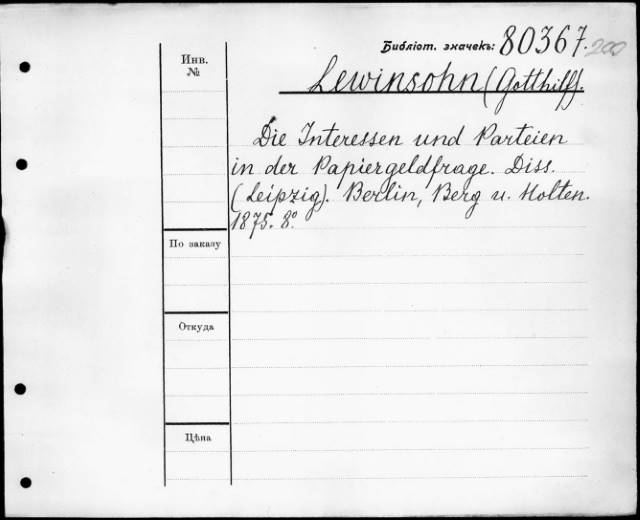 Библіот. значекъ: 80367. 200
Инв.
№
Lewinsohn (Gotthilf).
Die Interessen und Parteien
in der Papiergeldfrage. Diss.
(Leipzig). Berlin, Berg u. Holten.
1875. 8°.
По заказу
Откуда
Цѣна